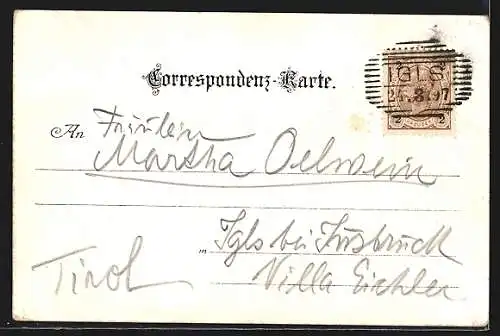 Correspondenz-Karte.
IGLS
24.8.97
2 2
An Fräulein
Martha Oelwein
in Igls bei Insbruck
Tirol Villa Eichler